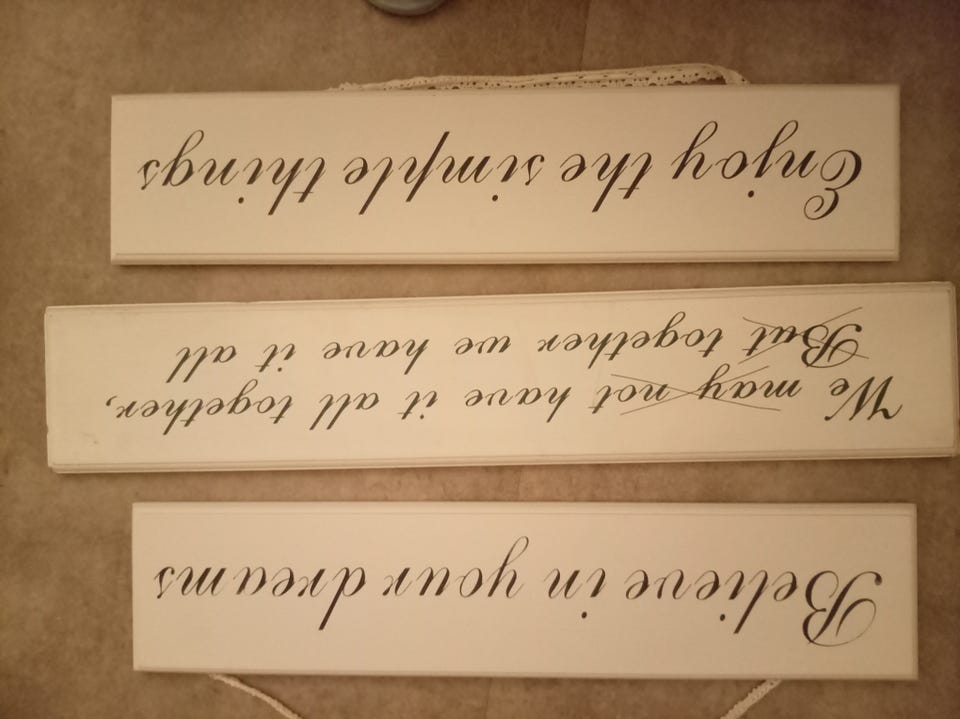 Believe in your dreams
We may not have it all together,
But together we have it all
Enjoy the simple things